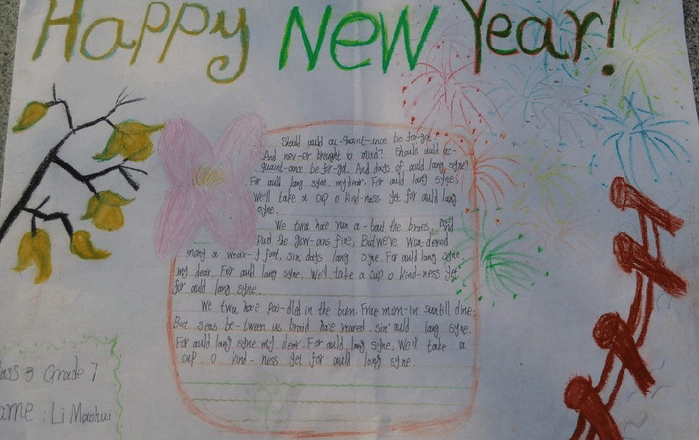 Happy New Year!
Should auld ac-quaint-ance be for-got
And nev-er brought to mind? Should auld ac-
quaint-ance be for-got. And days of auld lang syne?
For auld lang syne, my dear. For auld lang syne.
We'll take a cup o kind-ness yet for auld lang
syne.
We twa have run a-bout the braes, And
the gow-ans fine, But we've wan-dered
many a wear-y foot, sin days lang syne. For auld lang syne.
my dear. For auld lang syne. We'll take a cup o kind-ness yet
for auld lang syne.
We twa have pai-dled in the burn. Frae morn-in sun till dine.
But seas be-tween us braid have roared. sin' auld lang syne.
For auld lang syne my dear. For auld lang syne. We'll take a
cup o kind-ness yet for auld lang syne
3 Grade 7
: Li